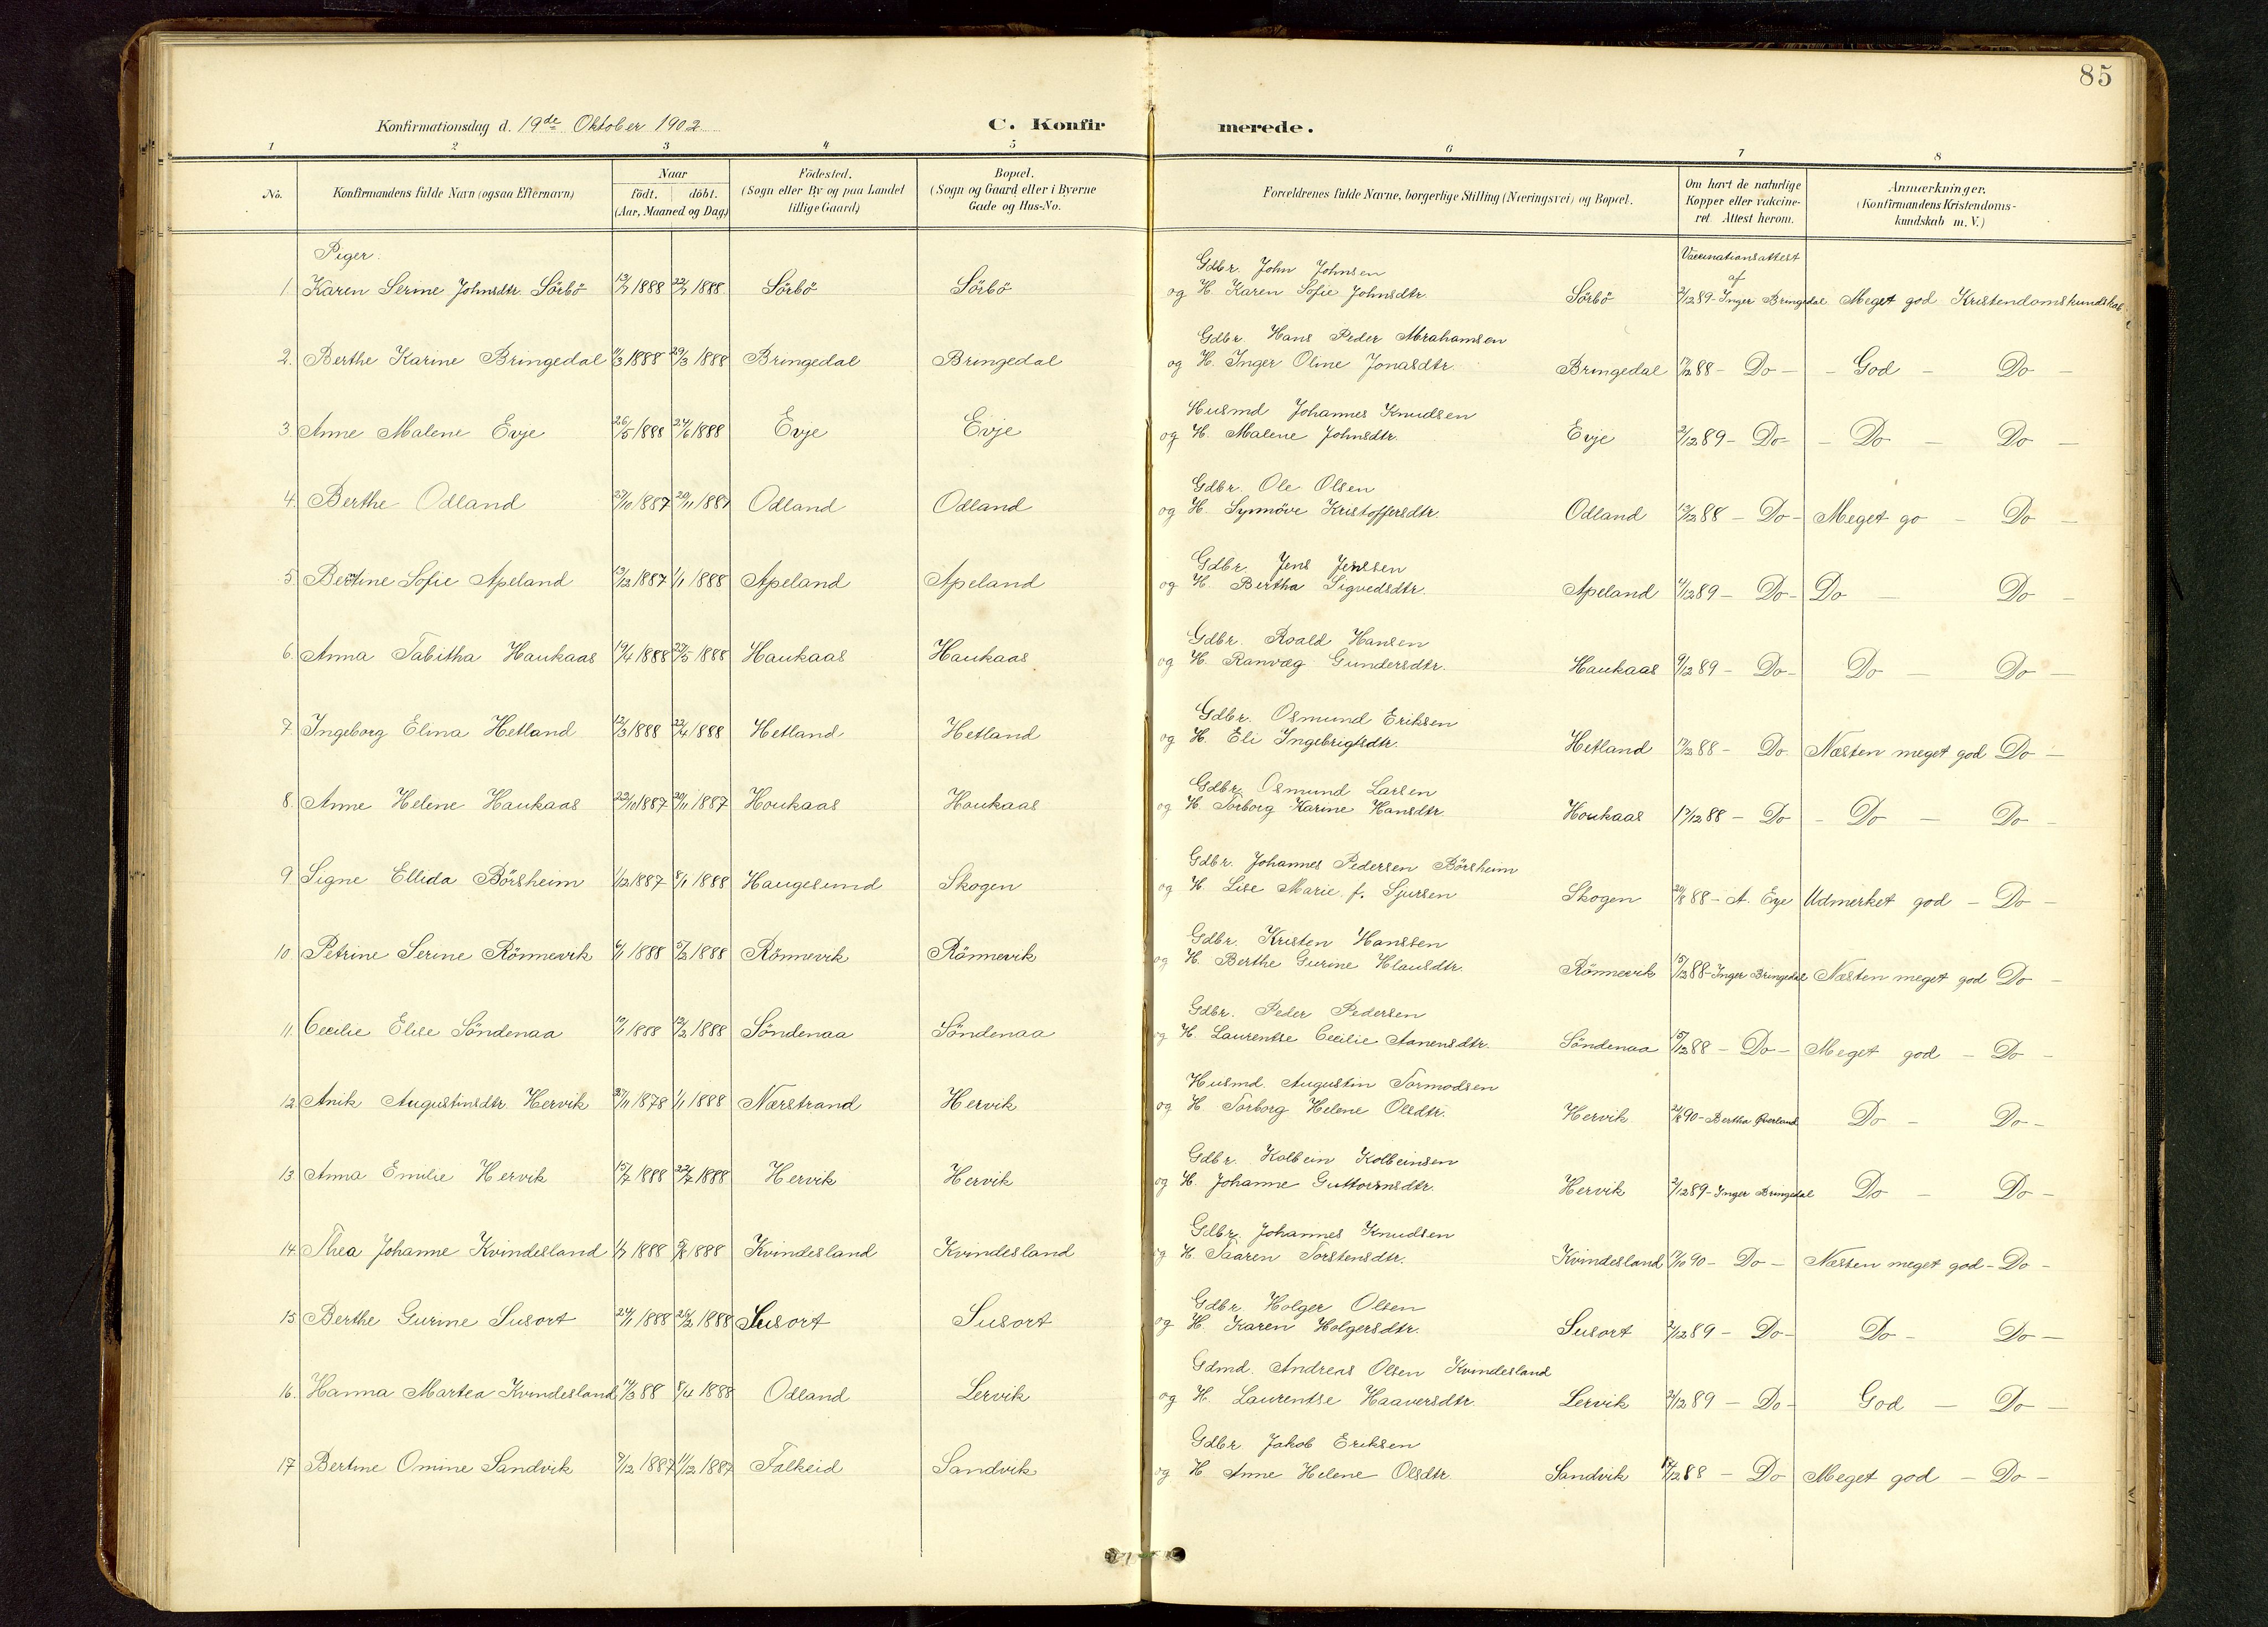 85
Konfirmationsdag d. 19de Oktober 1902
C. Konfirmerede.
1 2 3 4 5 6 7 8
No. Konfirmandens fulde Navn (ogsaa Efternavn) Naar födt. döbt. (Aar, Maaned og Dag) Födested. (Sogn eller By og paa Landet tillige Gaard) Bopæl. (Sogn og Gaard eller i Byerne Gade og Hus-No. Forældrenes fulde Navne, borgerlige Stilling (Næringsvei) og Bopæl. Om havt de naturlige Kopper eller vakcineret. Attest herom. Anmærkninger. (Konfirmandens Kristendomskundskab m. V.)
Piger:
Vaccinationsattest af
Gdbr. John Johnsen
1 Karen Serine Johnsdtr. Sörbö 1888 1888 Sörbö Sörbö og H. Karen Sofie Johnsdtr. Sörbö 2/12 89 - Inger Bringedal Meget god Kristendomskundskab
Gdbr. Hans Peder Abrahamsen
2. Berthe Karine Bringedal 1888 29/3 1888 Bringedal Bringedal og H. Inger Oline Jonasdtr. Bringedal 88 - Do - - God - Do -
Husmd Johannes Knudsen
3 Anne Malene Evje 26/5 1888 24/6 1888 Evje Evje og H. Malene Johnsdtr. Evje 2/12 89 - Do - - Do - Do -
Gdbr. Ole Olsen
4. Berthe Odland 1887 20/11 1887 Odland Odland og H. Synnöve Kristoffersdtr. Odland 88 - Do - Meget go - Do -
Gdbr. Jens Jenssen
5 Bertine Sofie Apeland 13/12 1887 1/1 1888 Apeland Apeland og H. Bertha Sigvedsdtr. Apeland 89 - Do - Do - Do -
Gdbr. Roald Hansen
6. Anna Tabitha Haukaas 19/4 1888 1888 Haukaas Haukaas og H. Ranvæg Gundersdtr. Haukaas 9/12 89 - Do - Do - Do -
Gdbr. Osmund Eriksen
7. Ingeborg Elina Hetland 12/3 1888 22/4 1888 Hetland Hetland og H. Eli Ingebrigtsdtr. Hetland 88 - Do. Næsten meget god Do -
Gdbr. Osmund Larsen
8. Anne Helene Haukaas 22/10 1887 20/11 1887 Houkaas Houkaas og H. Torborg Karine Hansdtr. Houkaas 17/12 88 - Do - Do - Do -
Gdbr. Johannes Pedersen Börsheim
9 Signe Ellida Börsheim 1/12 1887 8/1 1888 Haugesund Skogen og H. Lise Marie f. Sjursen Skogen 88 - A. Eye Udmerket god - Do -
Gdbr. Kristen Hanssen
10. Petrine Serine Rönnevik 1888 5/2 1888 Rönnevik Rönnevik og H. Berthe Gurine Klausdtr. Rönnevik 15/12 88 - Inger Bringedal Næsten meget god Do -
Gdbr. Peder Pedersen
11. Cecilie Elise Söndenaa 1888 12/2 1888 Söndenaa Söndenaa og H. Laurentse Cecilie Aanensdtr. Söndenaa 15/12 88 - Do - Meget god - Do -
Husmd. Augustin Tormodsen
12. Anik Augustinsdtr. Hervik 1878 1/1 1888 Nærstrand Hervik og H. Torborg Helene Olsdtr. Hervik 90 - Bertha Överland Do - Do -
Gdbr. Kolbein Kolbeinsen
13. Anna Emilie Hervik 15/7 1888 22/7 1888 Hervik Hervik og H. Johanne Guttormsdtr. Hervik 2/12 89 - Inger Bringedal Do - Do -
Gdbr. Johannes Knudsen
14. Thea Johanne Kvindesland 1/7 1888 5/8 1888 Kvindesland Kvindesland og H. Taaren Torstensdtr. Kvindesland 90 - Do - Næsten meget god - Do -
Gdbr. Holger Olsen
15 Berthe Gurine Susort 24/1 1888 26/2 1888 Susort Susort og H. Karen Holgersdtr. Susort 2/12 89 - Do - Do - Do -
Gdmd. Andreas Olsen Kvindesland
16. Hanna Martea Kvindesland 14/3 88 8/4 1888 Odland Lervik og H. Laurentse Haaversdtr. Lervik 2/12 89 - Do - God - Do -
Gdbr Jakob Eriksen
17 Bertine Omine Sandvik 1887 11/12 1887 Falkeid Sandvik og H. Anne Helene Olsdtr. Sandvik 88 - Do Meget god - Do -